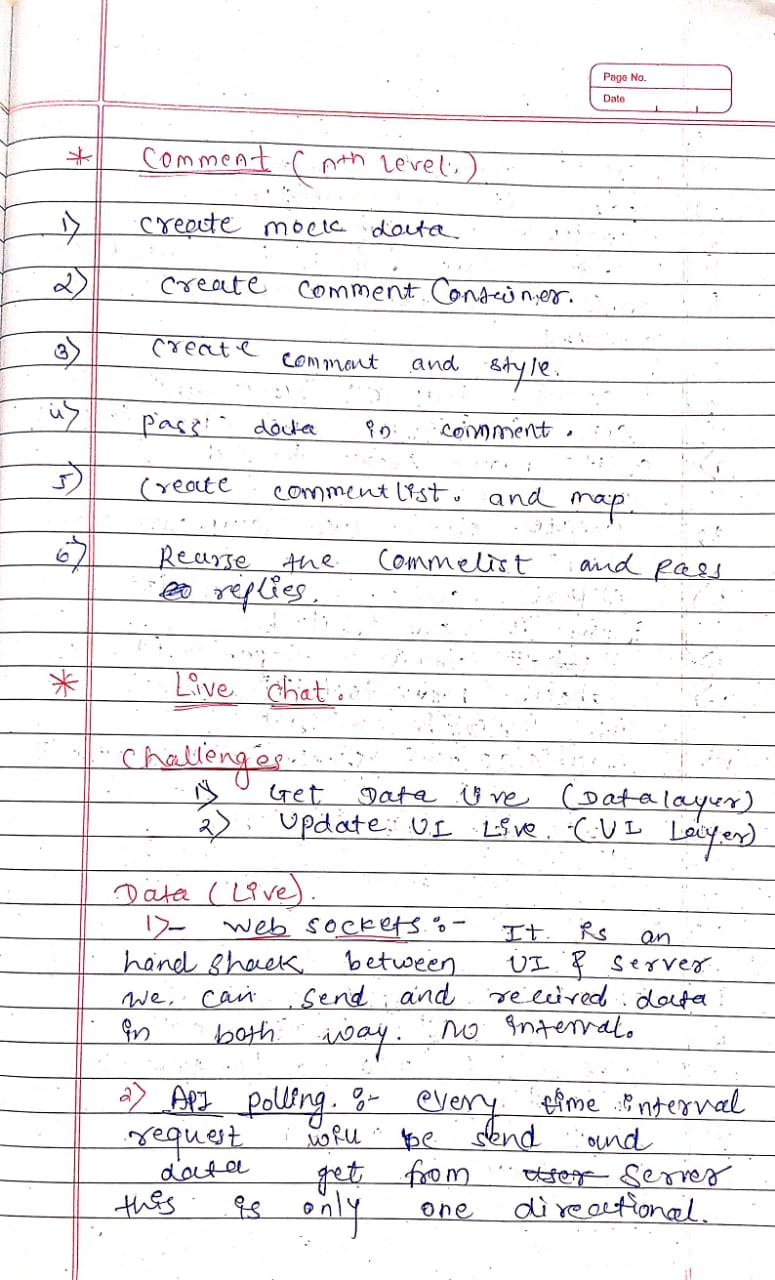 Page No.
Date
* Comment (nth Level.)
1) create mock data
2) create comment Container.
3) create comment and style.
4) pass data in comment.
5) create commentlist. and map.
6) Recurse the Commelist and pass
replies.
* Live chat.
Challenges.
1) Get Data live (Datalayer)
2) Update UI Live. (UI Layer)
Data (Live).
1)- Web sockets :- It is an
hand shack between UI & Server
we can send and received data
in both way. no interval.
2) API polling. :- every time interval
request will be send and
data get from user Server
this is only one direactional.